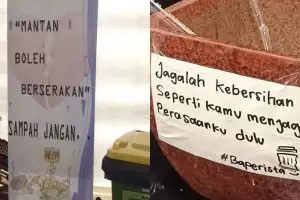 "MANTAN
BOLEH
BERSERAKAN"
SAMPAH JANGAN.
Jagalah kebersihan
Seperti kamu menjag
Perasaanku dulu
#Baperista